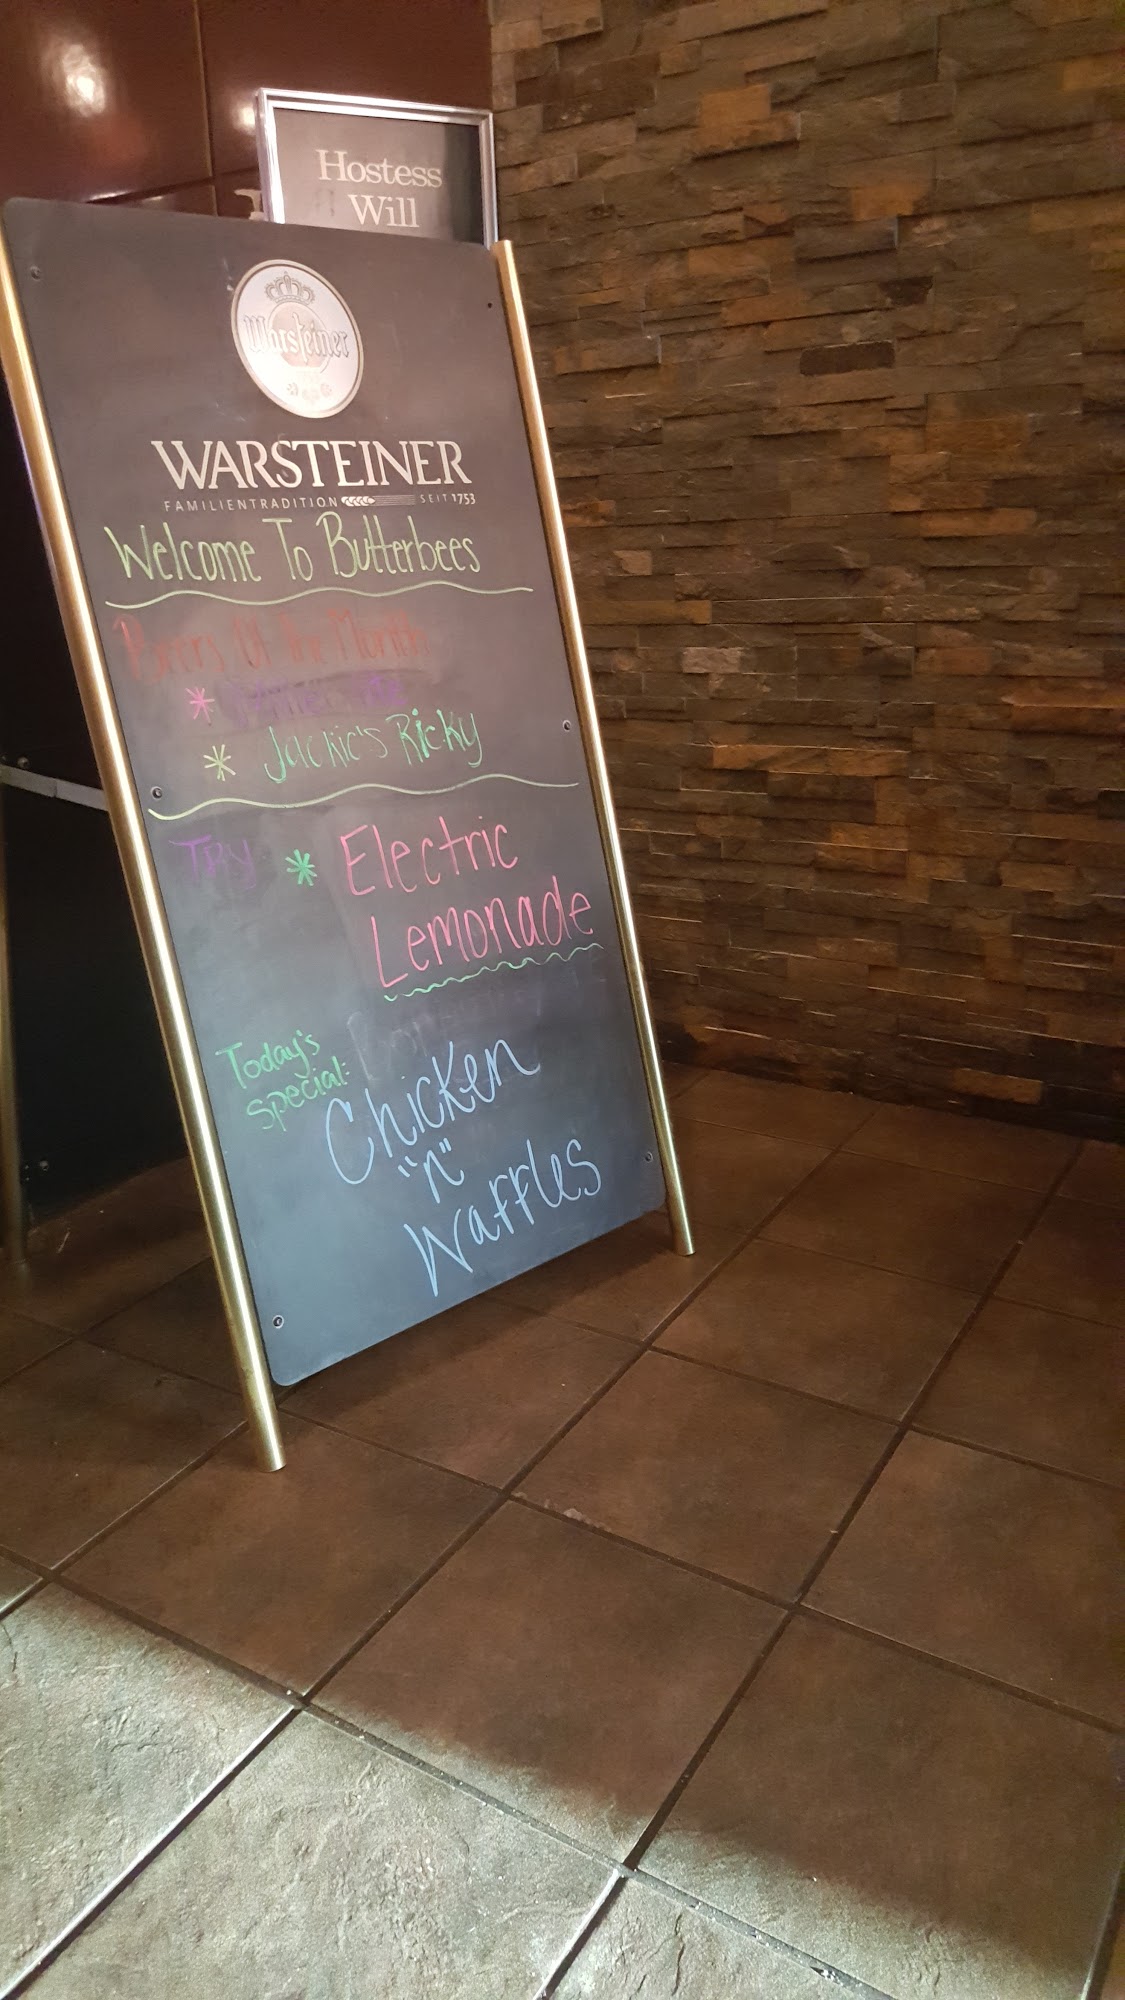 Hostess
Will
Warsteiner
WARSTEINER
FAMILIENTRADITION SEIT 1753
Welcome To Butterbees
Beers Of the Month
* 
* Jackie's Ricky
Try * Electric
Lemonade
Today's
Special:
Chicken
"n"
Waffles